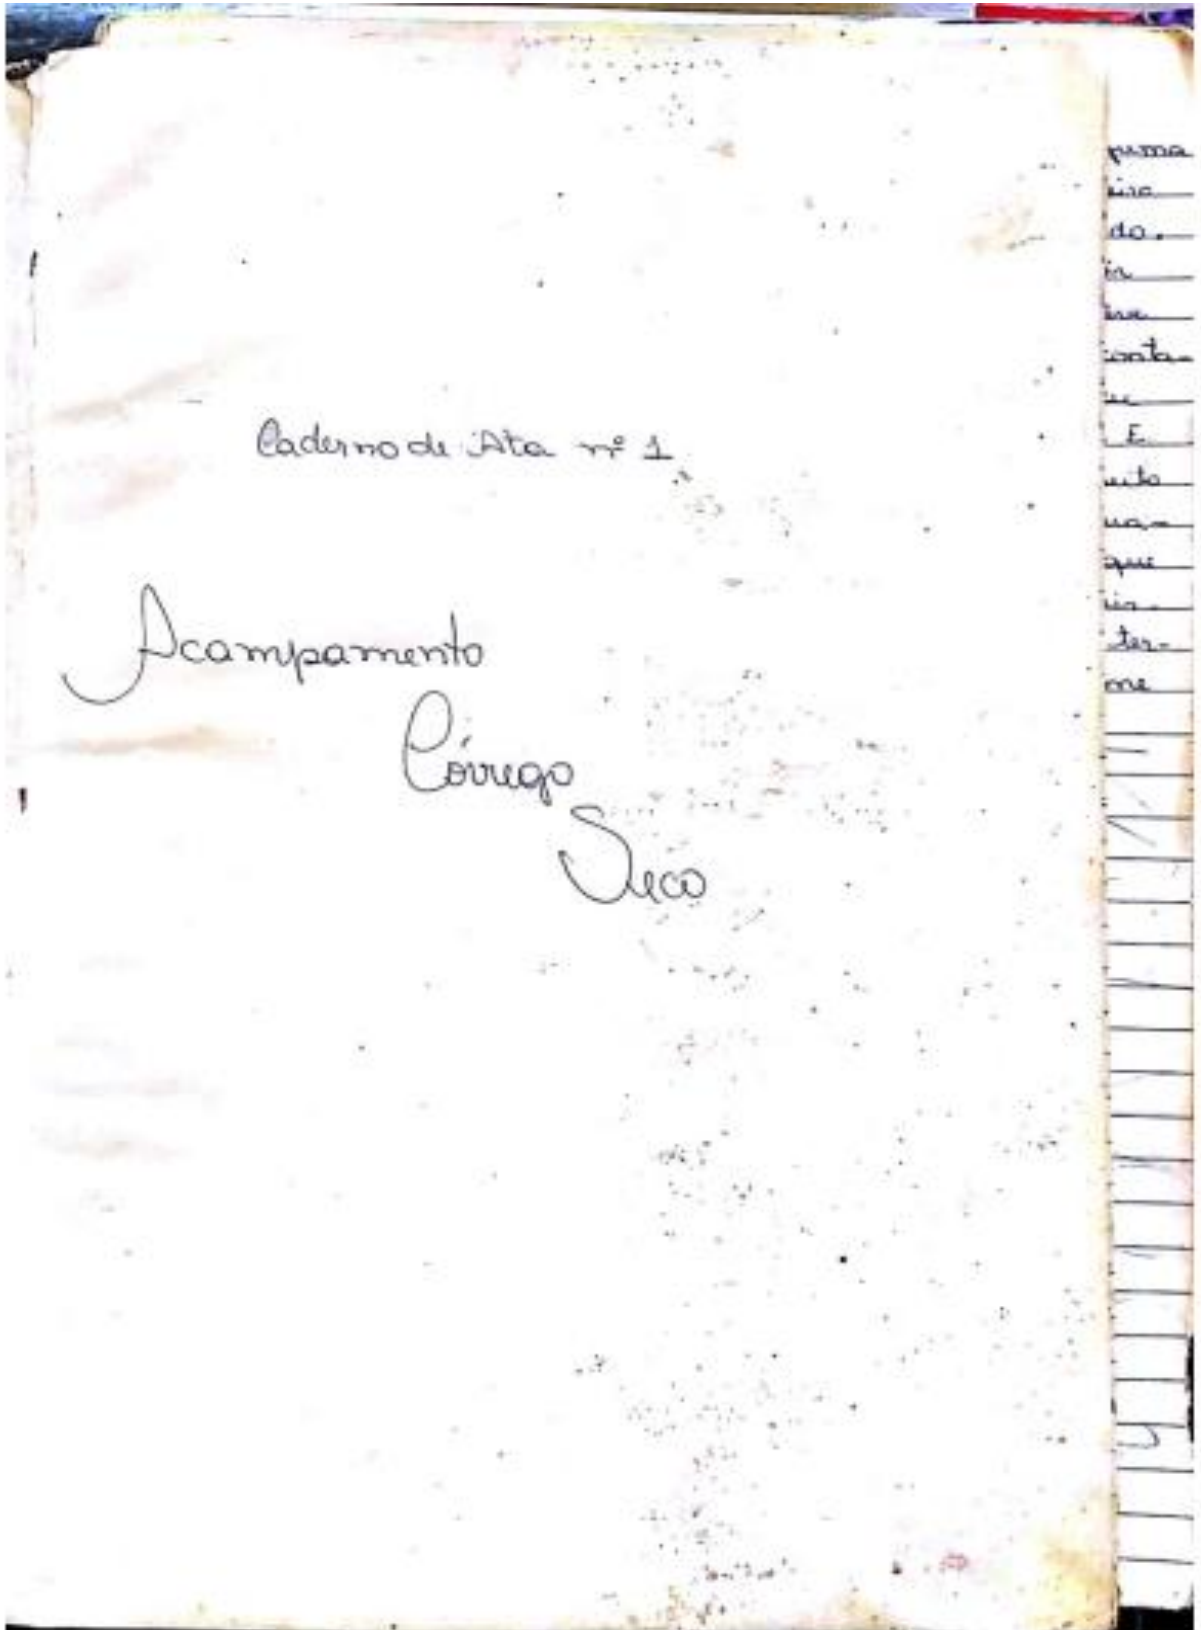 Caderno de Ata nº 1
Acampamento
Córrego
Seco
do.
conta-
E
que
ter-
me